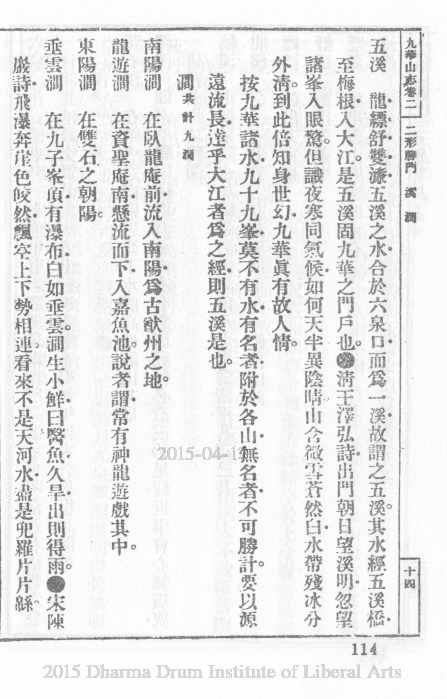 九華山志卷二 二形勝門 溪 澗 十四
五溪 龍纓舒雙溓五溪之水合於六泉口而爲一溪故謂之五溪其水經五溪橋
至梅根入大江是五溪固九華之門戶也。●淸王澤弘詩出門朝日望溪明忽望
諸峯入眼驚但譏夜寒同氣候如何天半異陰晴山含微雪蒼然白水帶殘冰分
外淸到此倍知身世幻九華眞有故人情。
按九華諸水九十九峯莫不有水有名者附於各山無名者不可勝計要以源
遠流長達乎大江者爲之經則五溪是也。
澗 共計九澗
南陽澗 在臥龍庵前流入南陽爲古猷州之地。
龍遊澗 在資聖庵南懸流而下入嘉魚池。說者謂常有神龍遊戲其中。
東陽澗 在雙石之朝陽。
垂雲澗 在九子峯頂有瀑布白如垂雲澗生小鮮曰醫魚久旱出則得雨。●宋陳
巖詩飛瀑奔崖色皎然飄空上下勢相連看來不是天河水盡是兜羅片片緜
114
2015-04-1
2015 Dharma Drum Institute of Liberal Arts